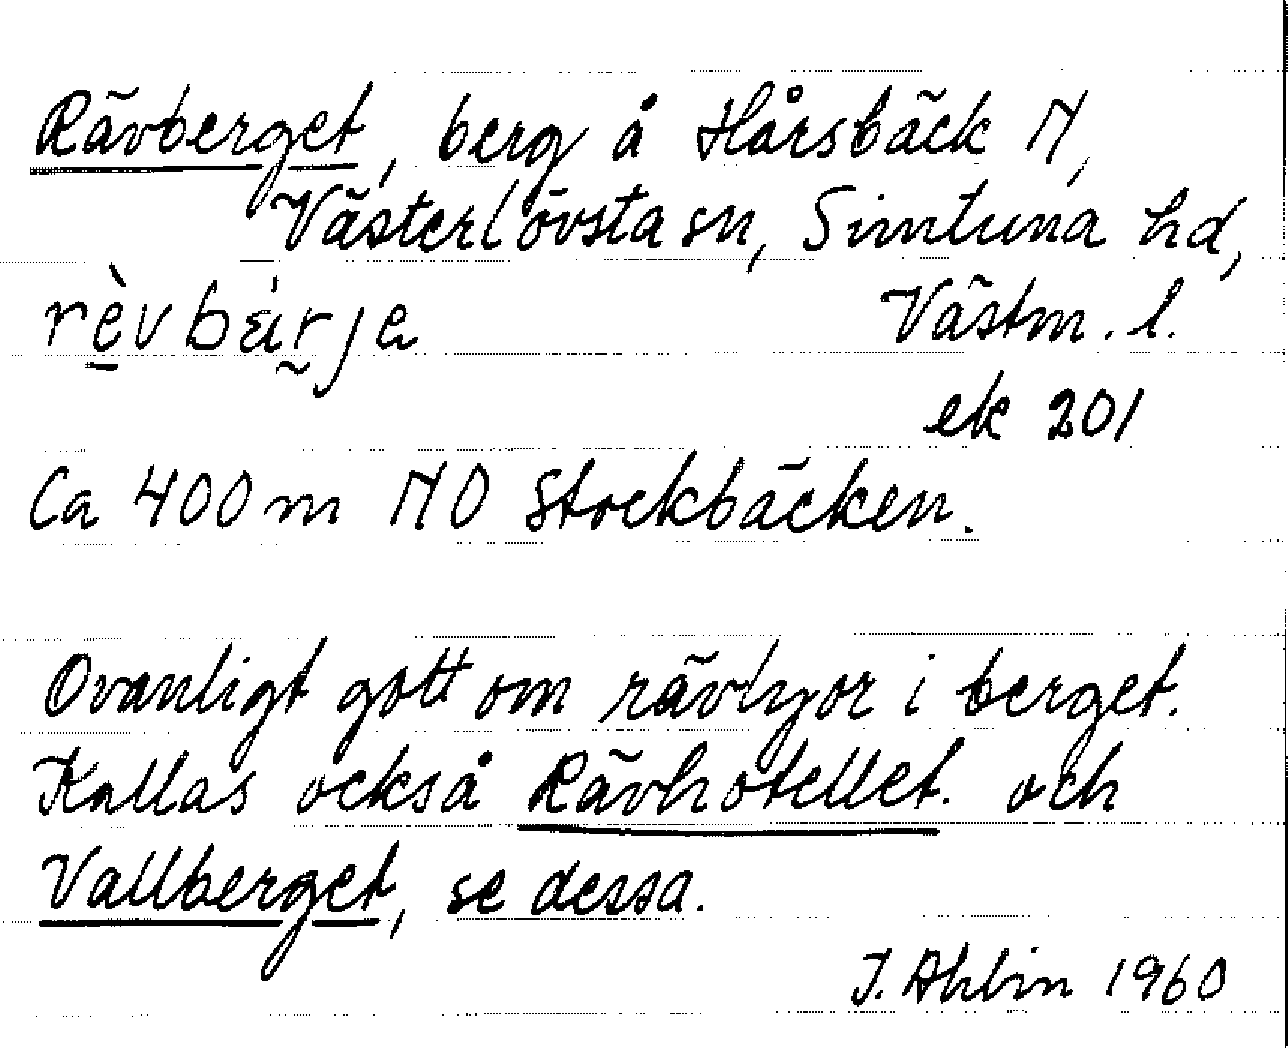 Rävberget, berg å Hårsbäck N,
Västerlövsta sn, Simtuna hd,
rèvbárje Västm. l.
ek 201
Ca 400 m NO Stockbäcken.
Ovanligt gott om rävlyor i berget.
Kallas också Rävhotellet. och
Vallberget, se dessa.
J. Ahlin 1960